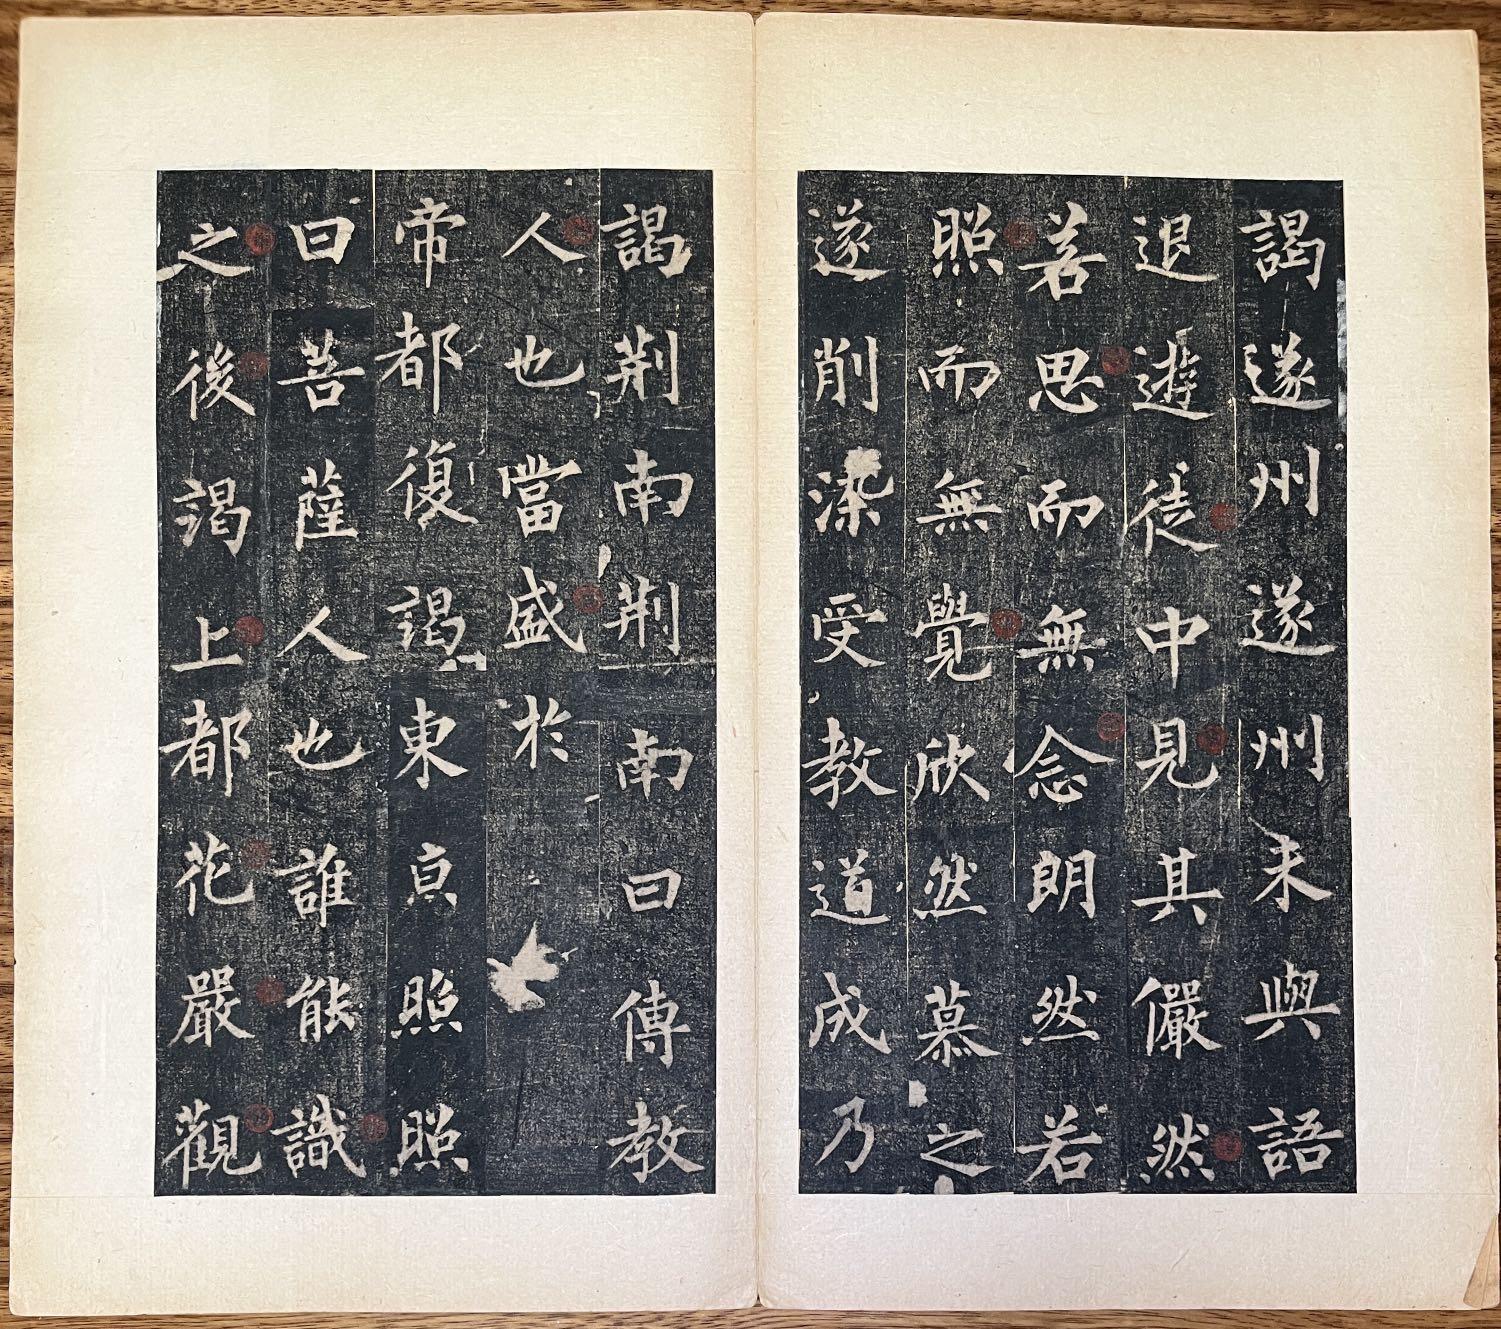 謁遂州遂州未與語
退遊徒中見其儼然
若思而無念朗然若
照而無覺欣然慕之
遂削染受教道成乃
謁荆南荆南曰傳教
人也當盛於
帝都復謁東京照照
曰菩薩人也誰能識
之後謁上都花嚴觀